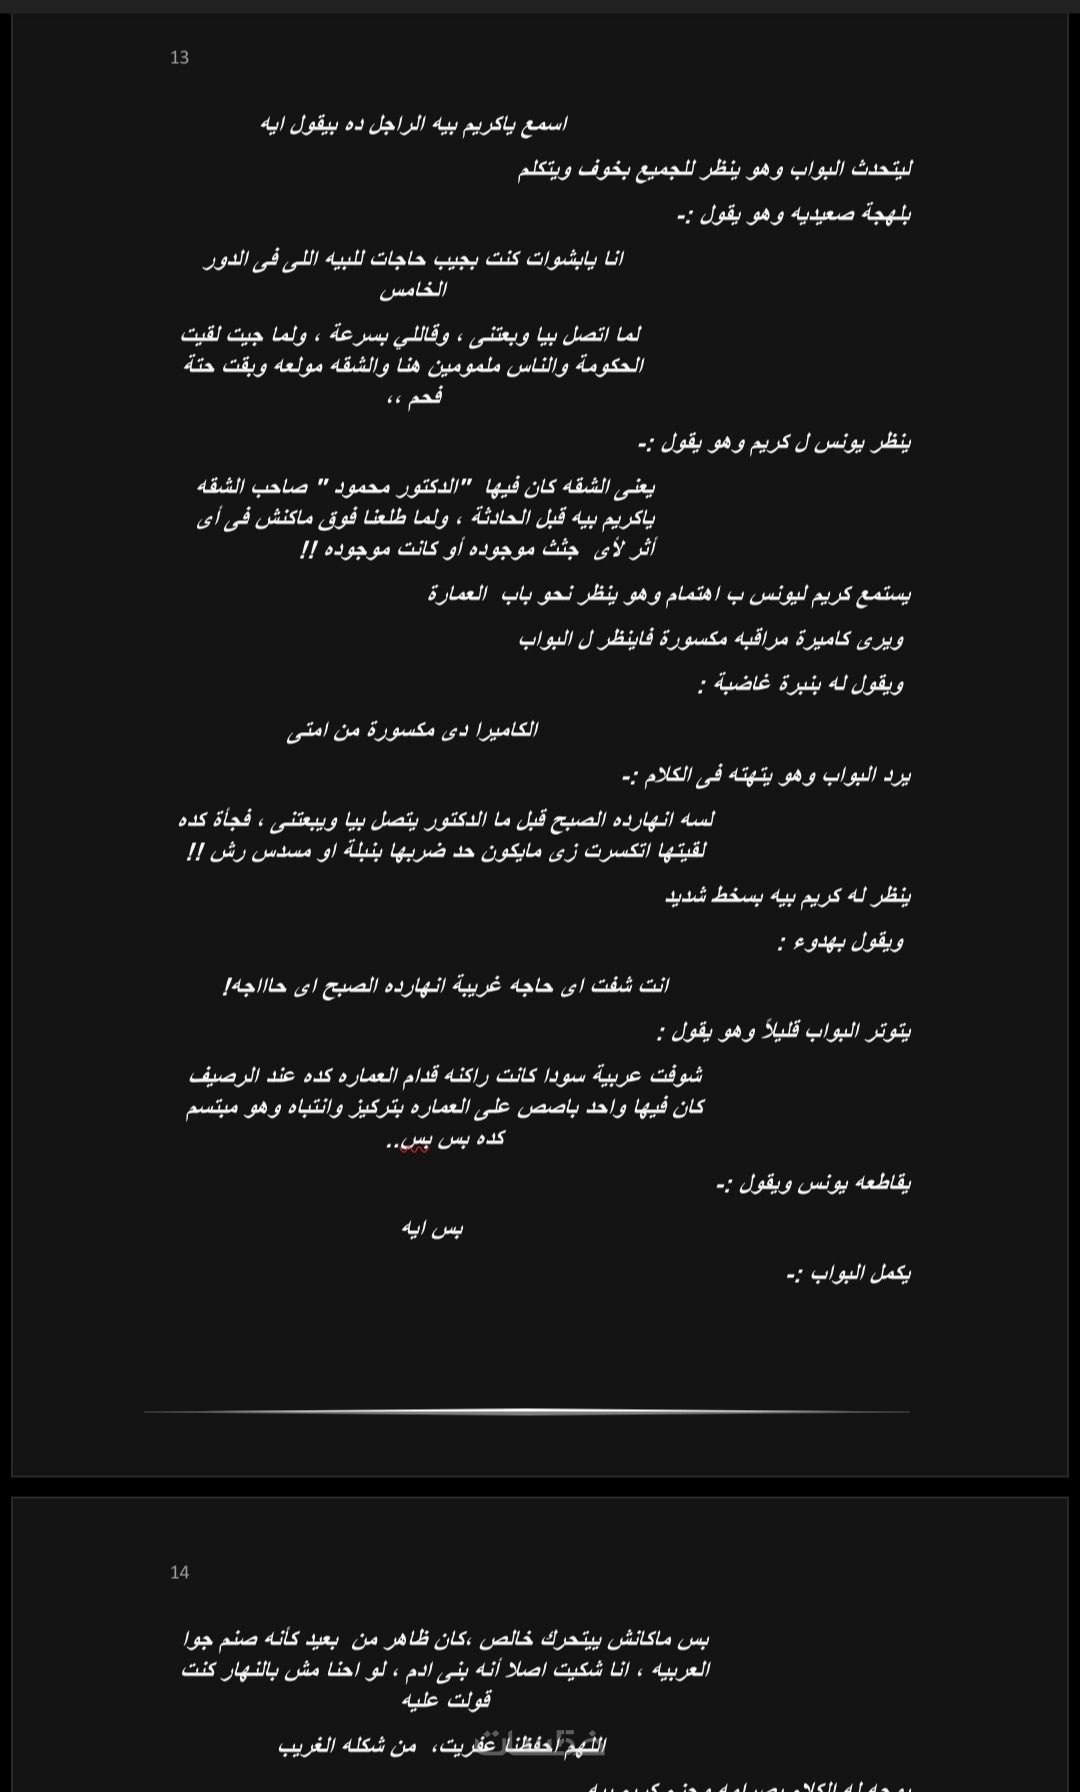 13
اسمع ياكريم بيه الراجل ده بيقول ايه
ليتحدث البواب وهو ينظر للجميع بخوف ويتكلم
بلهجة صعيديه وهو يقول :-
انا يابشوات كنت بجيب حاجات للبيه اللى فى الدور
الخامس
لما اتصل بيا وبعتنى ، وقاللي بسرعة ، ولما جيت لقيت
الحكومة والناس ملمومين هنا والشقه مولعه وبقت حتة
فحم ،،
ينظر يونس ل كريم وهو يقول :-
يعنى الشقه كان فيها "الدكتور محمود " صاحب الشقه
ياكريم بيه قبل الحادثة ، ولما طلعنا فوق ماكنش فى أى
أثر لأى جثث موجوده أو كانت موجوده !!
يستمع كريم ليونس ب اهتمام وهو ينظر نحو باب العمارة
ويرى كاميرة مراقبه مكسورة فاينظر ل البواب
ويقول له بنبرة غاضبة :
الكاميرا دى مكسورة من امتى
يرد البواب وهو يتهته فى الكلام :-
لسه انهارده الصبح قبل ما الدكتور يتصل بيا ويبعتنى ، فجأة كده
لقيتها اتكسرت زى مايكون حد ضربها بنبلة او مسدس رش !!
ينظر له كريم بيه بسخط شديد
ويقول بهدوء :
انت شفت اى حاجه غريبة انهارده الصبح اى حااااجه!
يتوتر البواب قليلاً وهو يقول :
شوفت عربية سودا كانت راكنه قدام العماره كده عند الرصيف
كان فيها واحد باصص على العماره بتركيز وانتباه وهو مبتسم
كده بس بس..
يقاطعه يونس ويقول :-
بس ايه
يكمل البواب :-
14
بس ماكانش بيتحرك خالص ،كان ظاهر من بعيد كأنه صنم جوا
العربيه ، انا شكيت اصلا أنه بنى ادم ، لو احنا مش بالنهار كنت
قولت عليه
اللهم احفظنا عفريت، من شكله الغريب